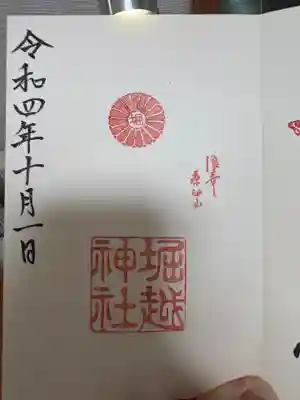 令和四年十月一日
堀越
神社